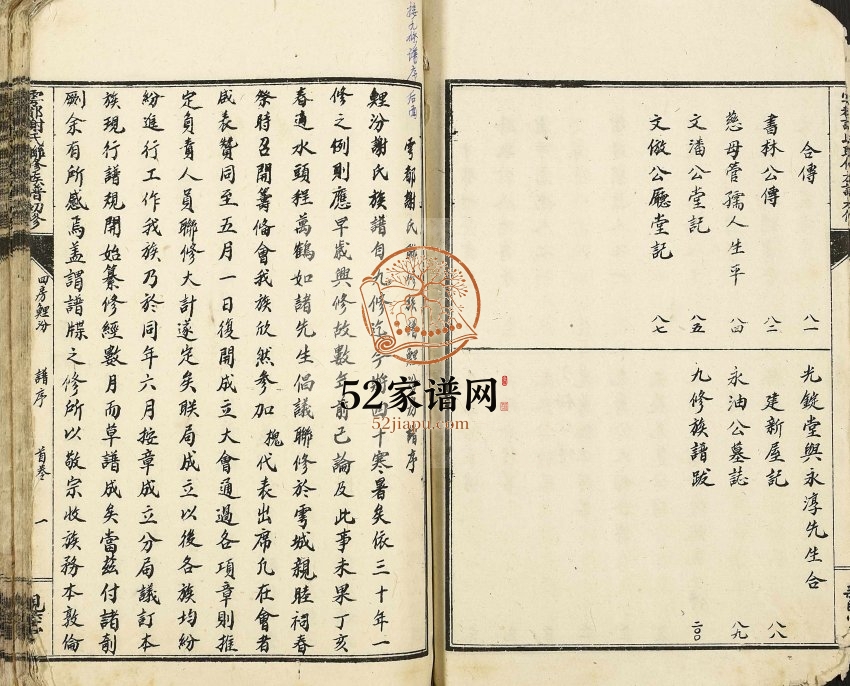 合傳 八一
書林公傳 八三
慈母管孺人生平 八四
文潘公堂記 八五
文倣公廳堂記 八七
光錠堂與永淳先生合
建新屋記 八八
永油公墓誌 八九
九修族譜跋 二〇
接九修譜序后面
雩都謝氏聯修族譜鯉汾譜序
鯉汾謝氏族譜自九修迄今將四十寒暑矣依三十年一
修之例則應早歲興修故數年前已論及此事未果丁亥
春適水頭程萬鶴如諸先生倡議聯修於雩城親睦祠春
祭時召開籌偹會我族欣然參加槐代表出席凢在會者
咸表贊同至五月一日復開成立大會通過各項章則推
定負責人員聯修大計遂定矣联局成立以後各族均紛
紛進行工作我族乃於同年六月按章成立分局議訂本
族現行譜規開始纂修經數月而草譜成矣當茲付諸剞
劂余有所感焉盖謂譜牒之修所以敬宗收族務本敦倫
雩都謝氏聯修族譜初修
四房鯉汾 譜序 首卷 一
親睦堂
52家谱网
52jiapu.com